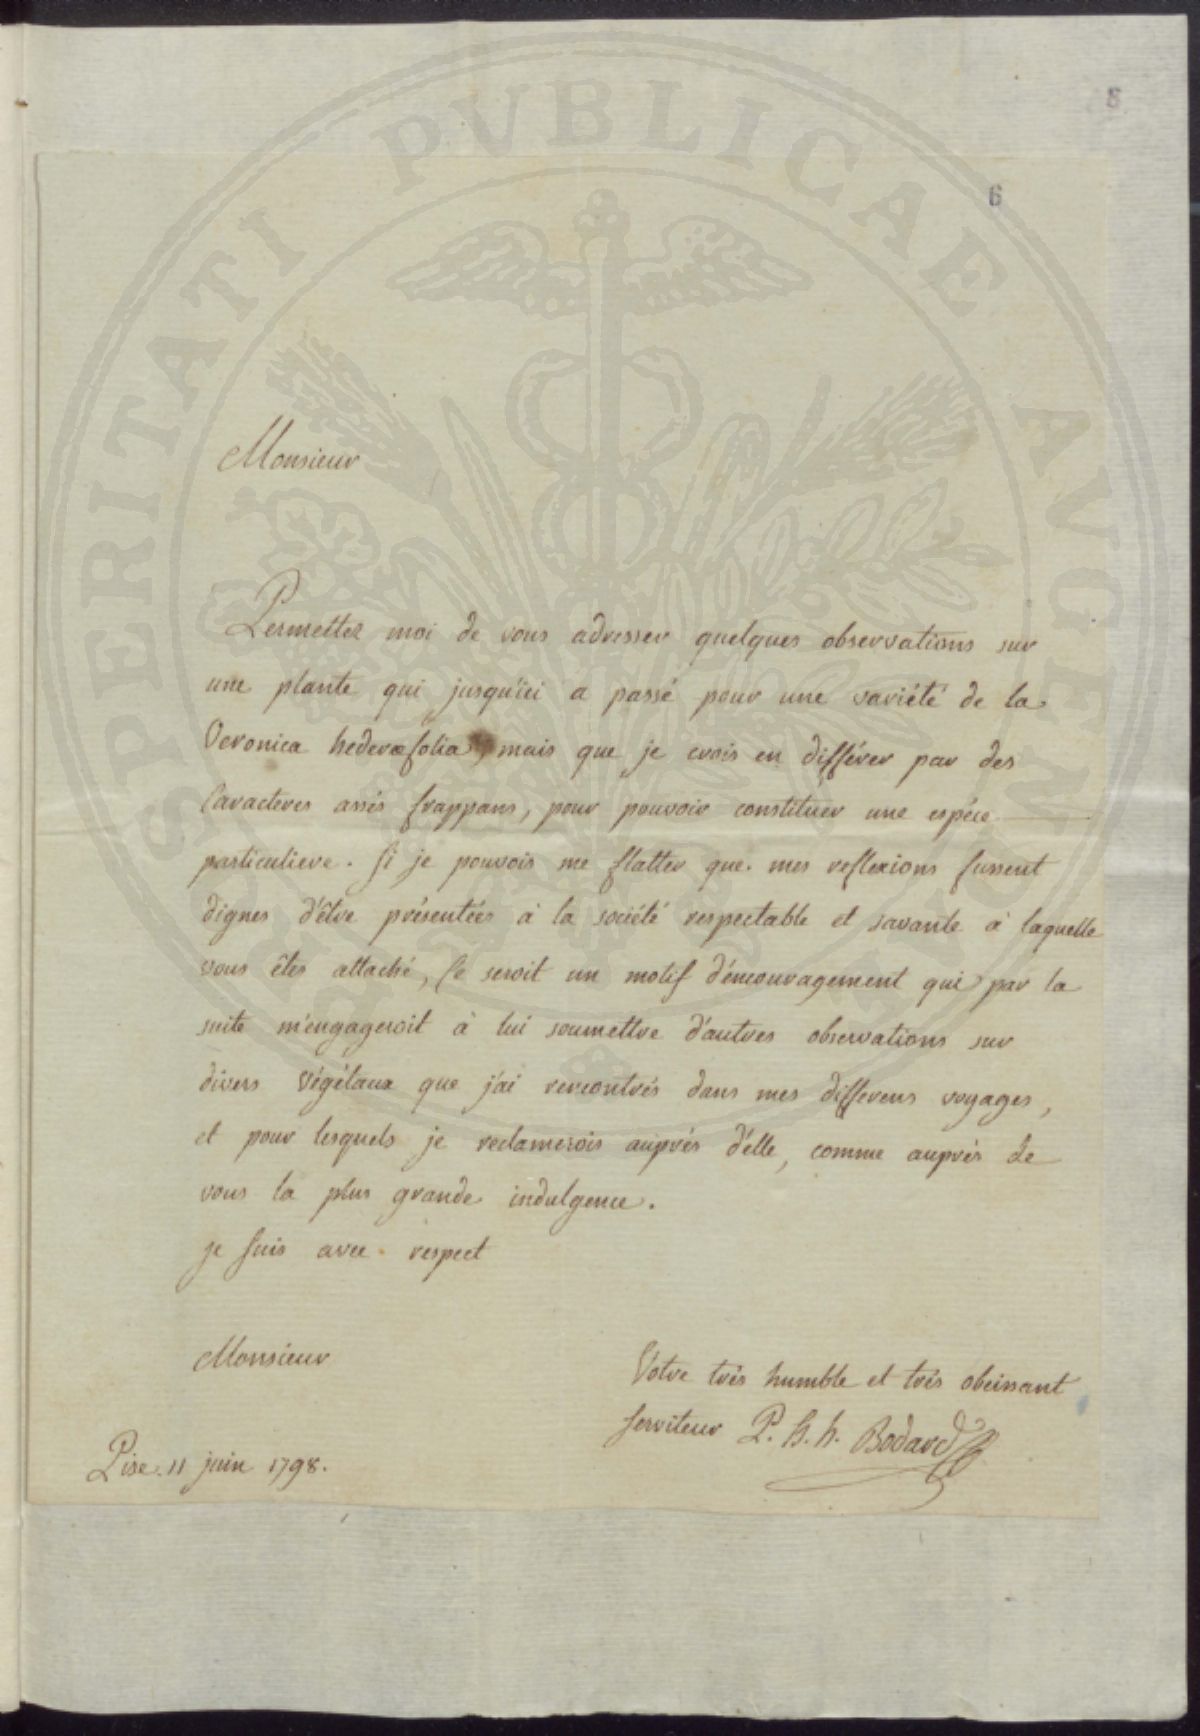 8
6
PROSPERITATI PVBLICAE AVGENDAE
Monsieur
Permettez moi de vous adresser quelques observations sur
une plante qui jusqu'ici a passé pour une variété de la
Veronica hederæfolia, mais que je crois en différer par des
Caracteres assés frappans, pour pouvoir constituer une espéce
particuliere. Si je pouvois me flatter que mes reflexions fussent
dignes d'être présentées à la société respectable et savante à laquelle
vous êtes attaché, Ce seroit un motif d'éncouragement qui par la
suite m'engageroit à lui soumettre d'autres observations sur
divers Végétaux que j'ai rencontrés dans mes differens voyages,
et pour lesquels je reclamerois auprés d'elle, comme auprés de
vous la plus grande indulgence.
je suis avec respect
Monsieur
Votre trés humble et trés obeissant
serviteur P. h. h. Bodard
Pise. 11 juin 1798.